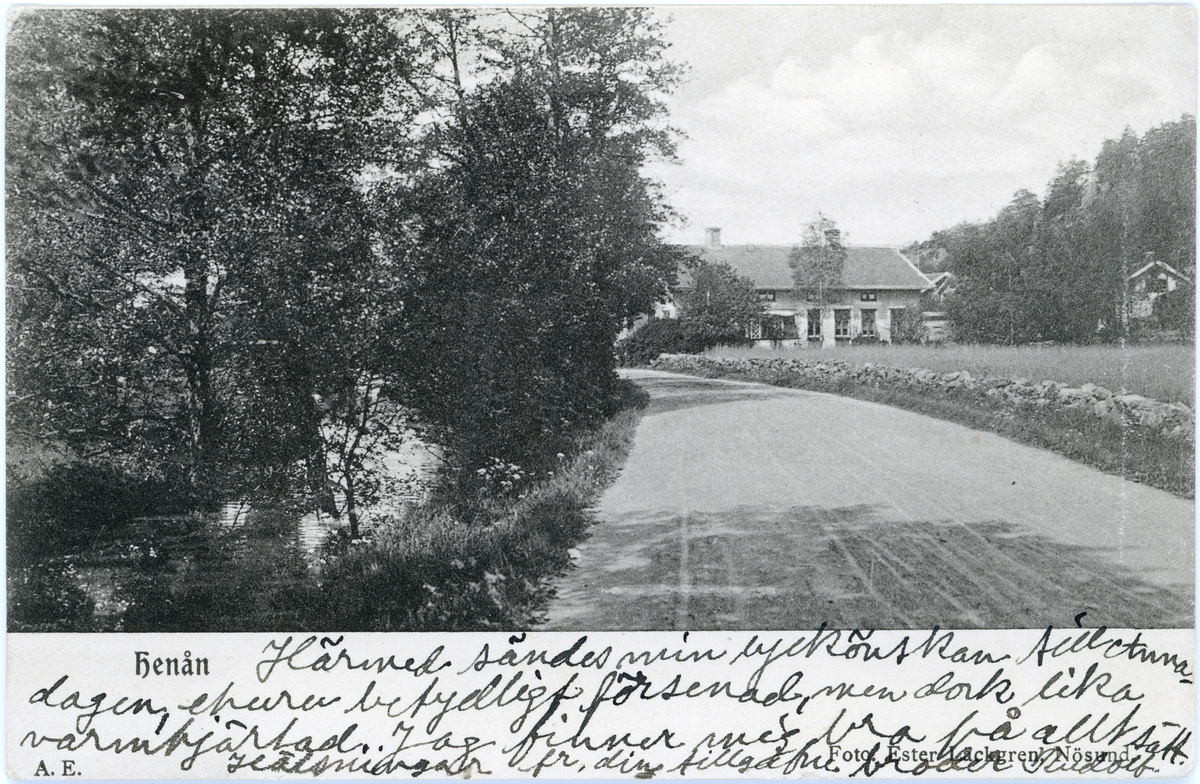 Henån
Härmed sändes min lyckönskan till Anna-
dagen, ehuru betydligt försenad, men dock lika
varmhjärtad. Jag finner mig bra på allt sätt.
Hälsningar fr. din tillgifne broder
A. E.
Foto. Ester Läckgren, Nösund.